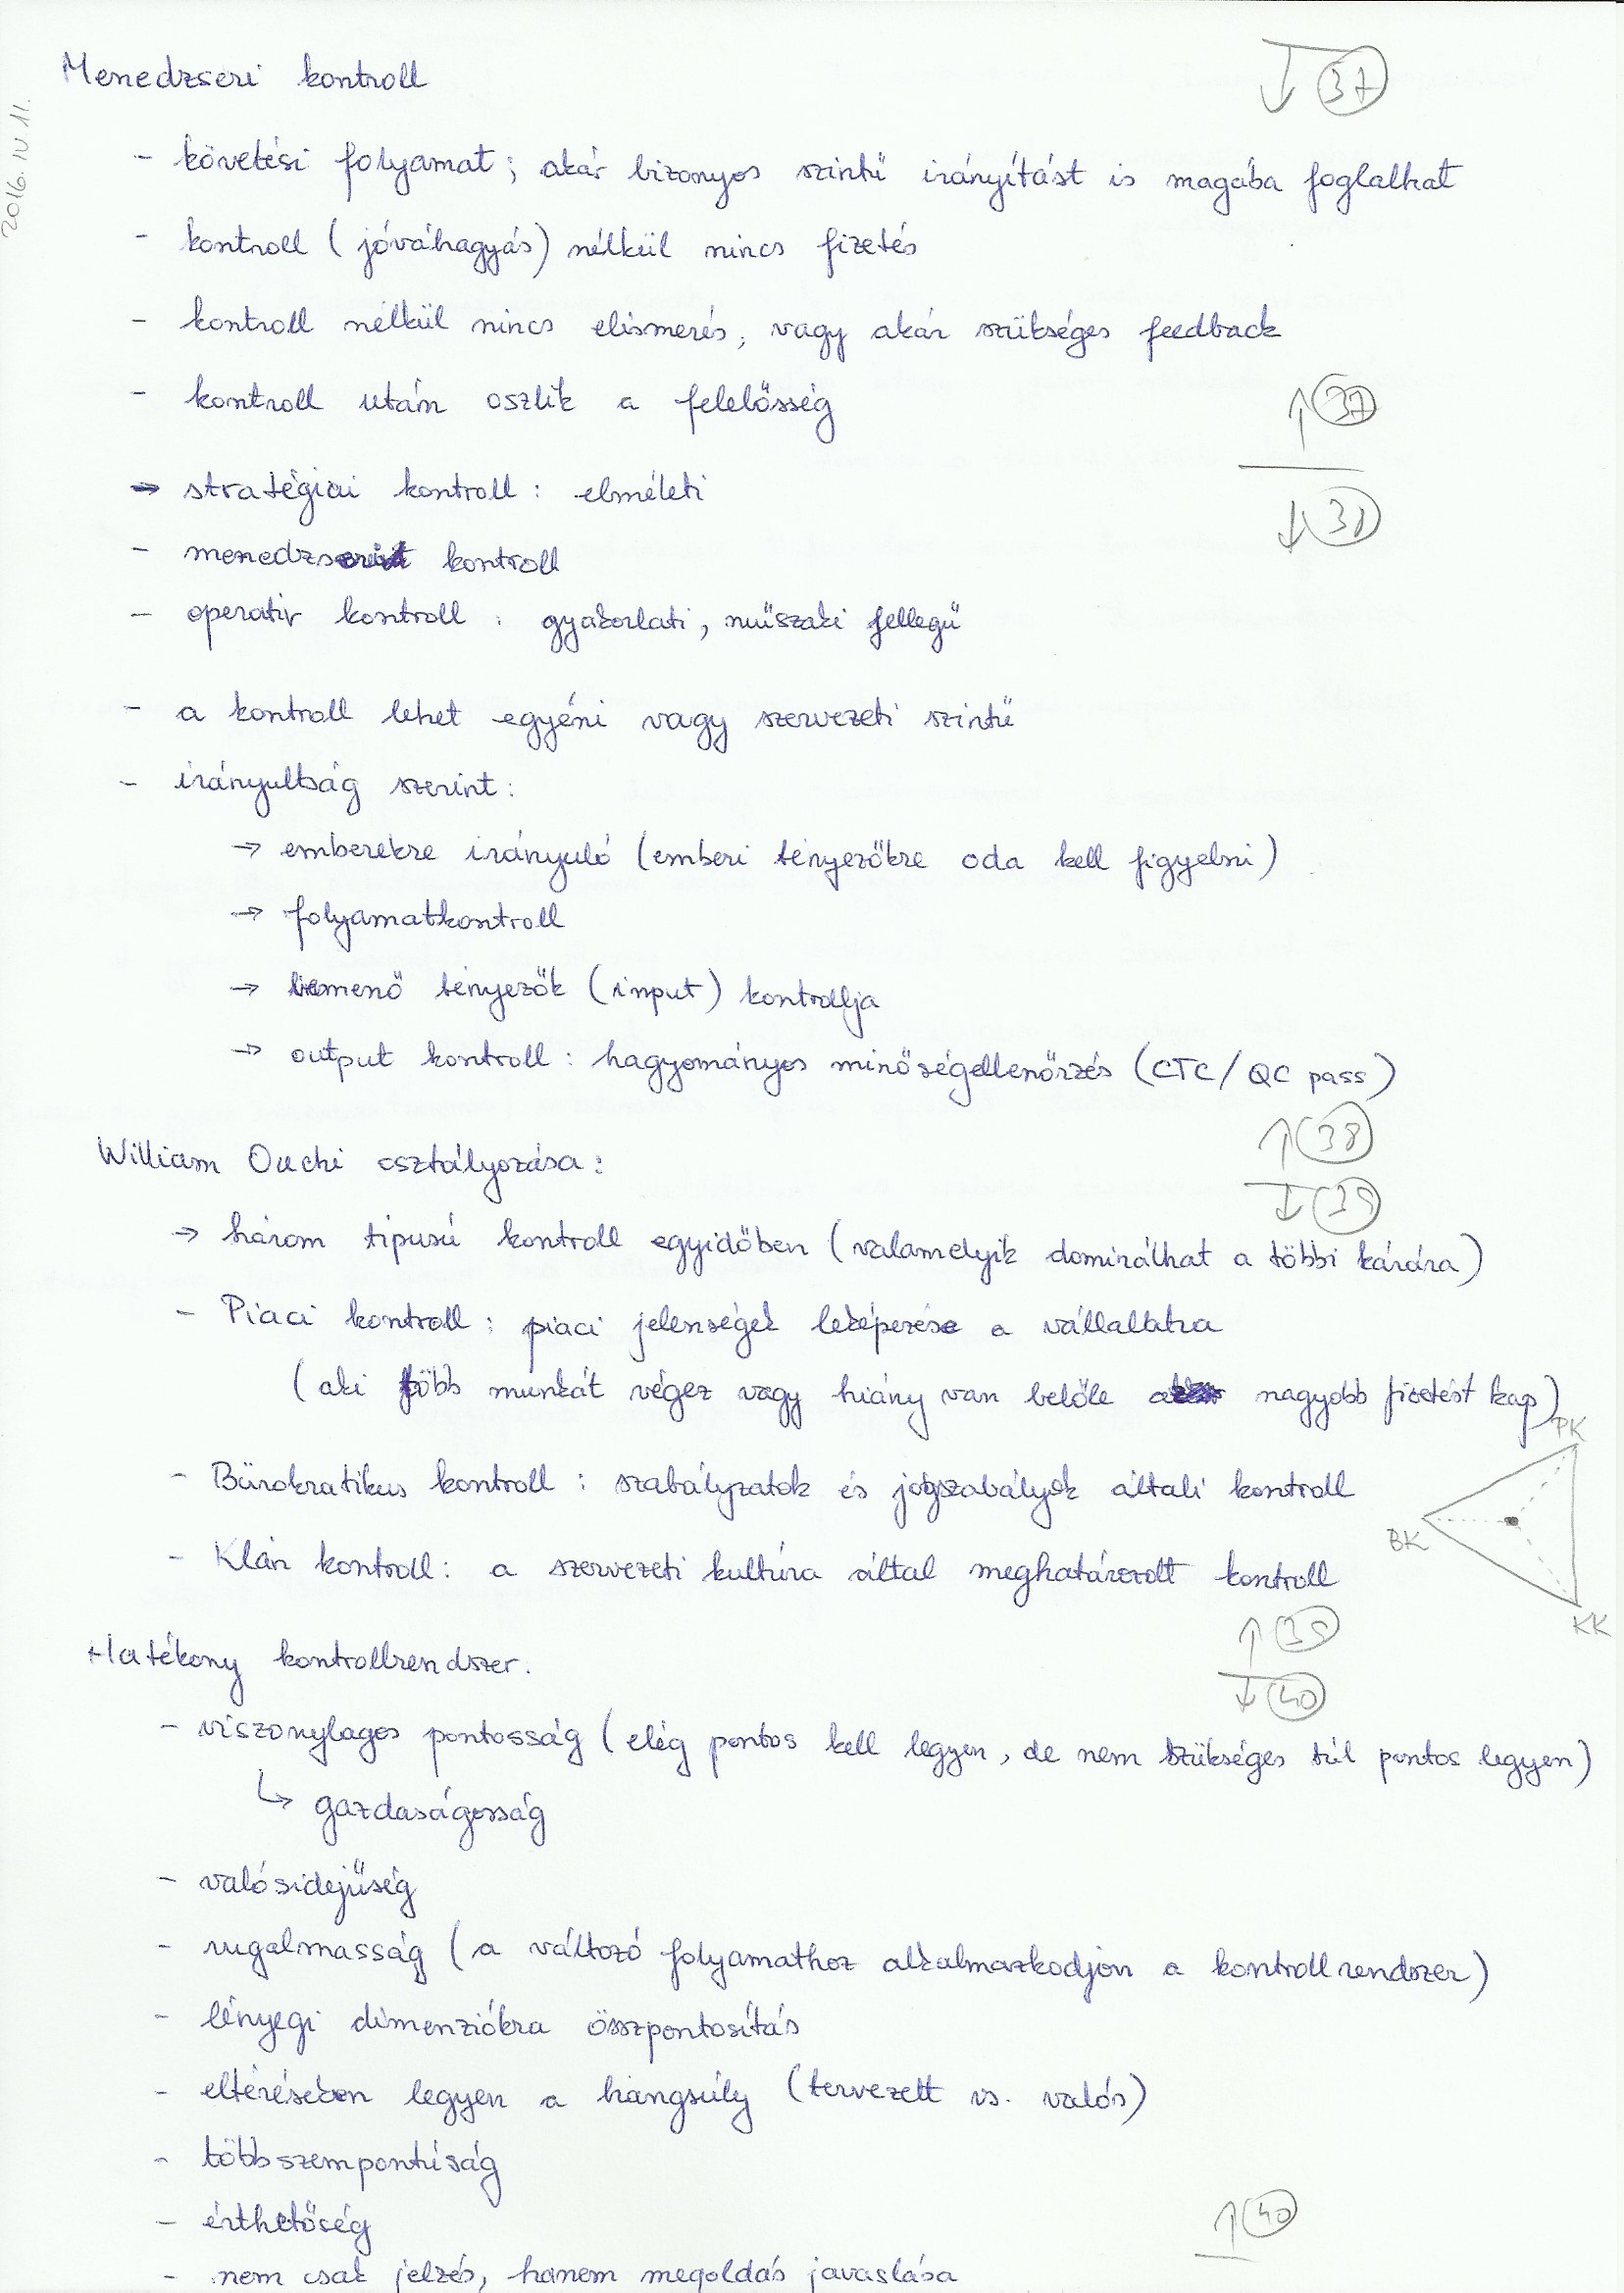 Menedzseri kontroll
↓ 37
2016. IV 11.
- követési folyamat; akár bizonyos szintű irányítást is magába foglalhat
- kontroll (jóváhagyás) nélkül nincs fizetés
- kontroll nélkül nincs elismerés, vagy akár szükséges feedback
- kontroll után oszlik a felelősség
↑ 37
→ stratégiai kontroll: elméleti
↓ 38
- menedzseri kontroll
- operatív kontroll: gyakorlati, műszaki jellegű
- a kontroll lehet egyéni vagy szervezeti szintű
- irányultság szerint:
→ emberekre irányuló (emberi tényezőkre oda kell figyelni)
→ folyamatkontroll
→ bemenő tényezők (input) kontrollja
→ output kontroll: hagyományos minőségellenőrzés (CTC/QC pass)
↑ 38
William Ouchi osztályozása:
↓ 39
→ három típusú kontroll egyidőben (valamelyik dominálhat a többi kárára)
- Piaci kontroll: piaci jelenségek leképezése a vállallatra
(aki több munkát végez vagy hiány van belőle nagyobb fizetést kap)
PK
- Bürokratikus kontroll: szabályzatok és jogszabályok általi kontroll
BK
- Klán kontroll: a szervezeti kultúra által meghatározott kontroll
KK
↑ 39
Hatékony kontrollrendszer.
↓ 40
- viszonylagos pontosság (elég pontos kell legyen, de nem szükséges túl pontos legyen)
↳ gazdaságosság
- valósidejűség
- rugalmasság (a változó folyamathoz alkalmazkodjon a kontrollrendszer)
- lényegi dimenziókra összpontosítás
- eltéréseken legyen a hangsúly (tervezett vs. valós)
- többszempontúság
- érthetőség
↑ 40
- nem csak jelzés, hanem megoldás javaslása